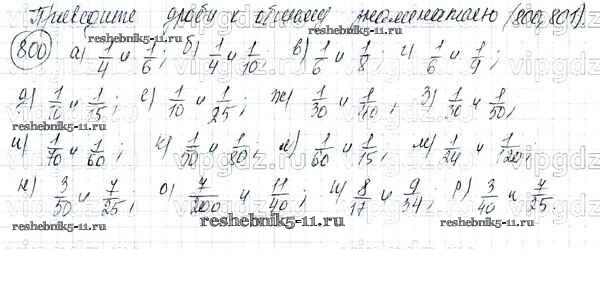 Приведите дроби к общему знаменателю (800, 801).
800 а) 1/4 и 1/6; б) 1/4 и 1/10; в) 1/6 и 1/8; г) 1/6 и 1/9;
д) 1/10 и 1/15; е) 1/10 и 1/25; ж) 1/30 и 1/40; з) 1/30 и 1/50;
reshebnik5-11.ru
и) 1/70 и 1/60; к) 1/50 и 1/80; л) 1/60 и 1/15; м) 1/24 и 1/120;
н) 3/50 и 7/25; о) 7/200 и 11/40; п) 8/17 и 9/34; р) 3/40 и 7/25.
reshebnik5-11.ru